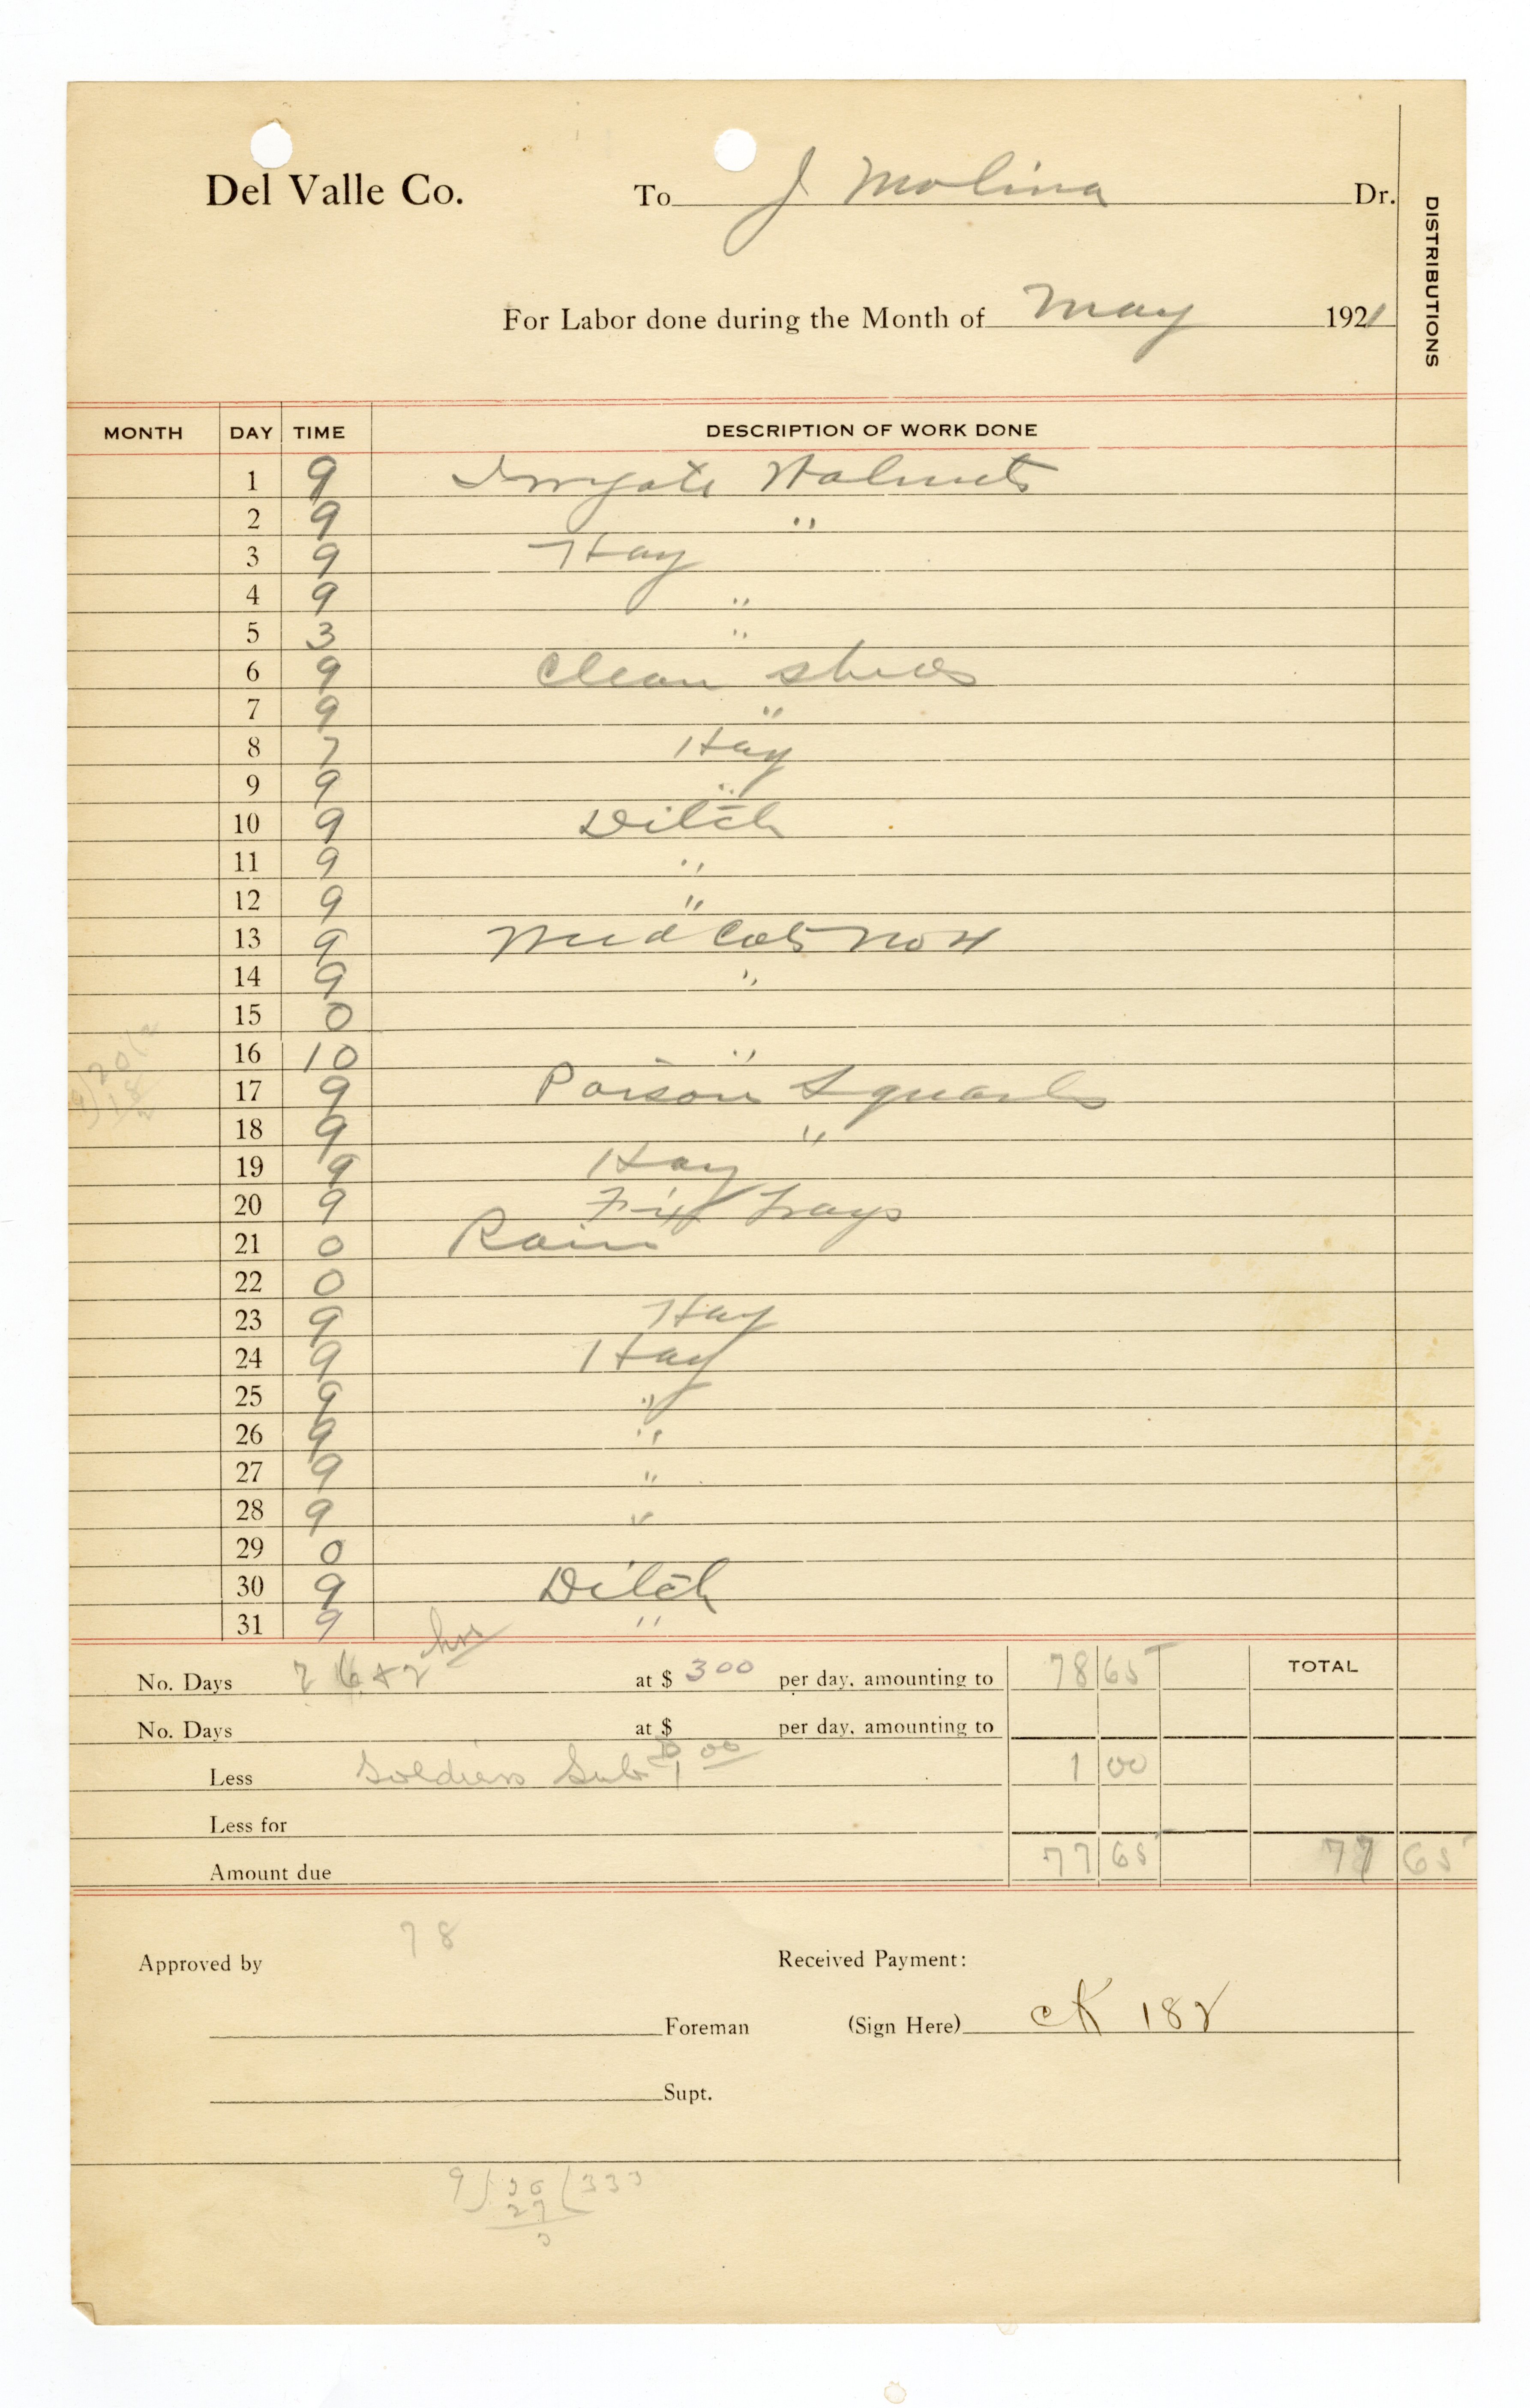 Del Valle Co. To J Molina Dr.
DISTRIBUTIONS
For Labor done during the Month of May 1921
MONTH DAY TIME DESCRIPTION OF WORK DONE
1 9 Irrygate Walnuts
2 9 "
3 9 Hay
4 9 "
5 3 "
6 9 Clean sheds
7 9 "
8 7 Hay
9 9 "
10 9 Ditch
11 9 "
12 9 "
13 9 No 4
14 9 "
15 0
16 10 "
17 9 Poison Squarls
18 9 "
19 9 Hay
20 9 Fix Trays
21 0 Rain
22 0
23 9 Hay
24 9 Hay
25 9 "
26 9 "
27 9 "
28 9 "
29 0
30 9 Ditch
31 9 "
No. Days 26 + 2 hrs at $ 300 per day, amounting to 78 65 TOTAL
No. Days at $ per day, amounting to
Less Soldiers Sub 1 00 1 00
Less for
Amount due 77 65 77 65
78
Approved by Received Payment:
Foreman (Sign Here) CK 182
Supt.
9) 30 (333
27
3